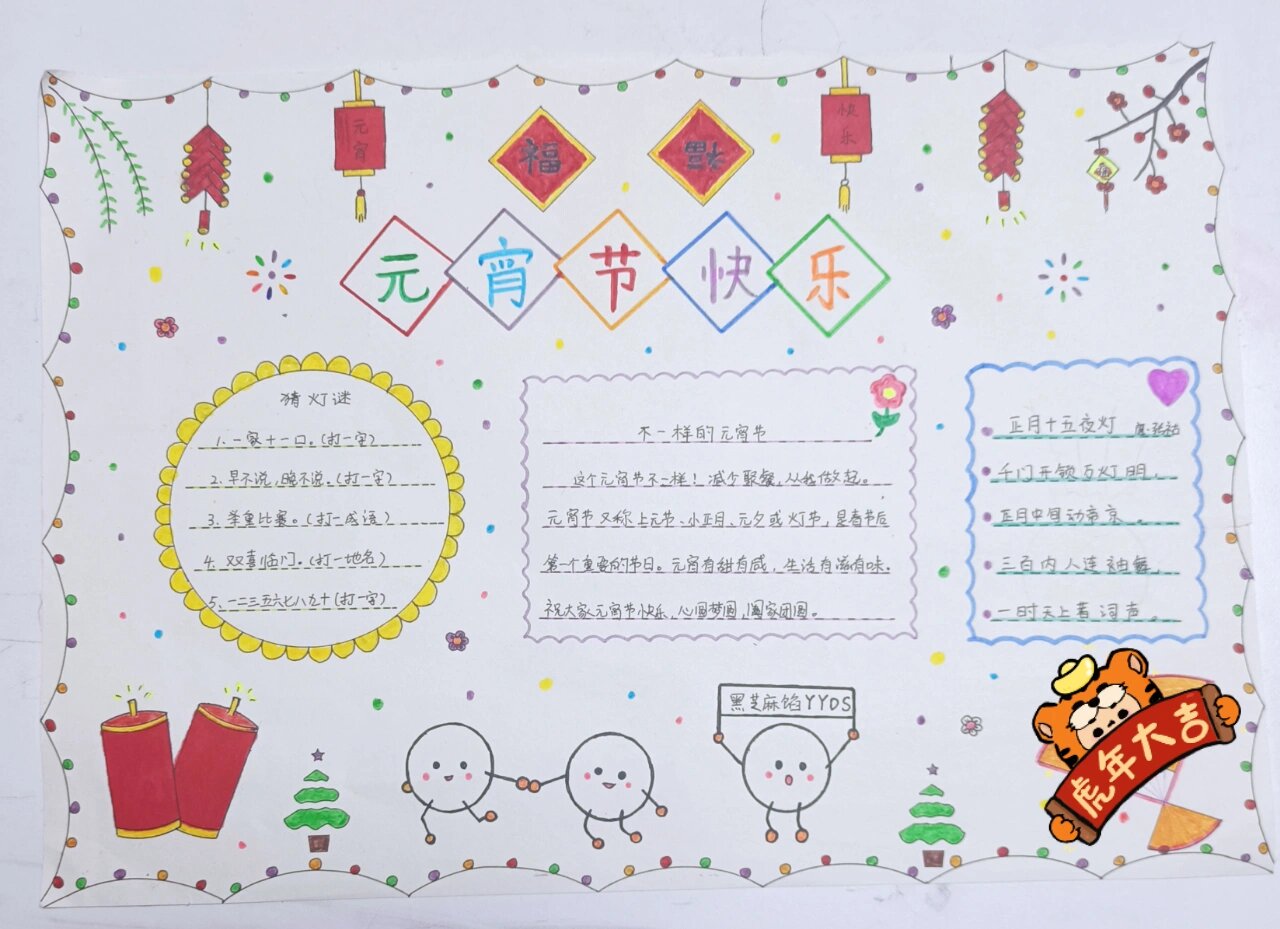 元宵
快乐
福
福
元宵节快乐
猜灯谜
1. 一家十一口。(打一字)
2. 早不说,晚不说。(打一字)
3. 举重比赛。(打一成语)
4. 双喜临门。(打一地名)
5. 一二三五六七八九十(打一字)
不一样的元宵节
这个元宵节不一样!减个聚餐,从我做起。
元宵节又称上元节、小正月、元夕或灯节,是春节后
第一个重要的节日。元宵有甜有咸,生活有滋有味.
祝大家元宵节快乐,心圆梦圆,阖家团圆。
正月十五夜灯 张祜
千门开锁万灯明,
正月中旬动帝京。
三百内人连袖舞,
一时天上著词声。
黑芝麻馅YYDS
虎年大吉